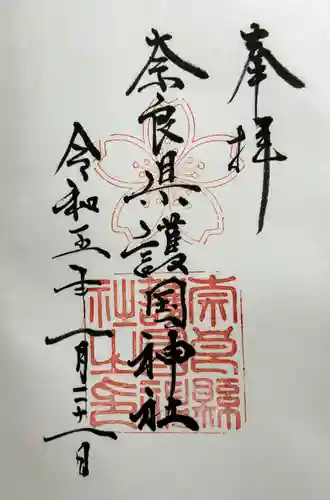 奉拝
奈良県護国神社
令和五年一月二十一日
奈良縣護國神社之印